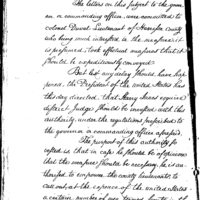 The letters on this subject to the gover-
nor or commanding officer were committed to
Colonel Duval Lieutenant of Henrico county
who being much interested in the measure it
is presumed, took effectual measures that it
should be expeditiously conveyed
But lest any delay should have hap-
pened, the President of the United States has
this day directed that Harry Innes esquire
district Judge should be invested with the
authority, under the regulations prescribed to
the governor or commanding officer aforesaid.
The purport of this authority so
vested is that in case he should be of opinion
that the measure should be necessary he is au-
thorised to empower the county lieutenants to
call out at the expence of the United States
a certain number of